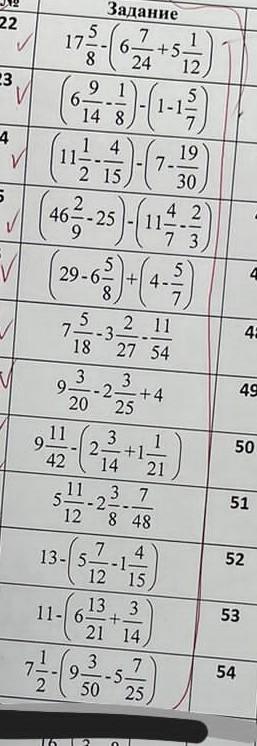 № Задание
22 17 5/8-(6 7/24+5 1/12)
23 (6 9/14-1/8)-(1-1 5/7)
4 (11 1/2-4/15)-(7-19/30)
5 (46 2/9-25)-(11 4/7-2/3)
(29-6 5/8)+(4-5/7) 4
7 5/18-3 2/27-11/54 48
9 3/20-2 3/25+4 49
9 11/42-(2 3/14+1 1/21) 50
5 11/12-2 3/8-7/48 51
13-(5 7/12-1 4/15) 52
11-(6 13/21+3/14) 53
7 1/2-(9 3/50-5 7/25) 54